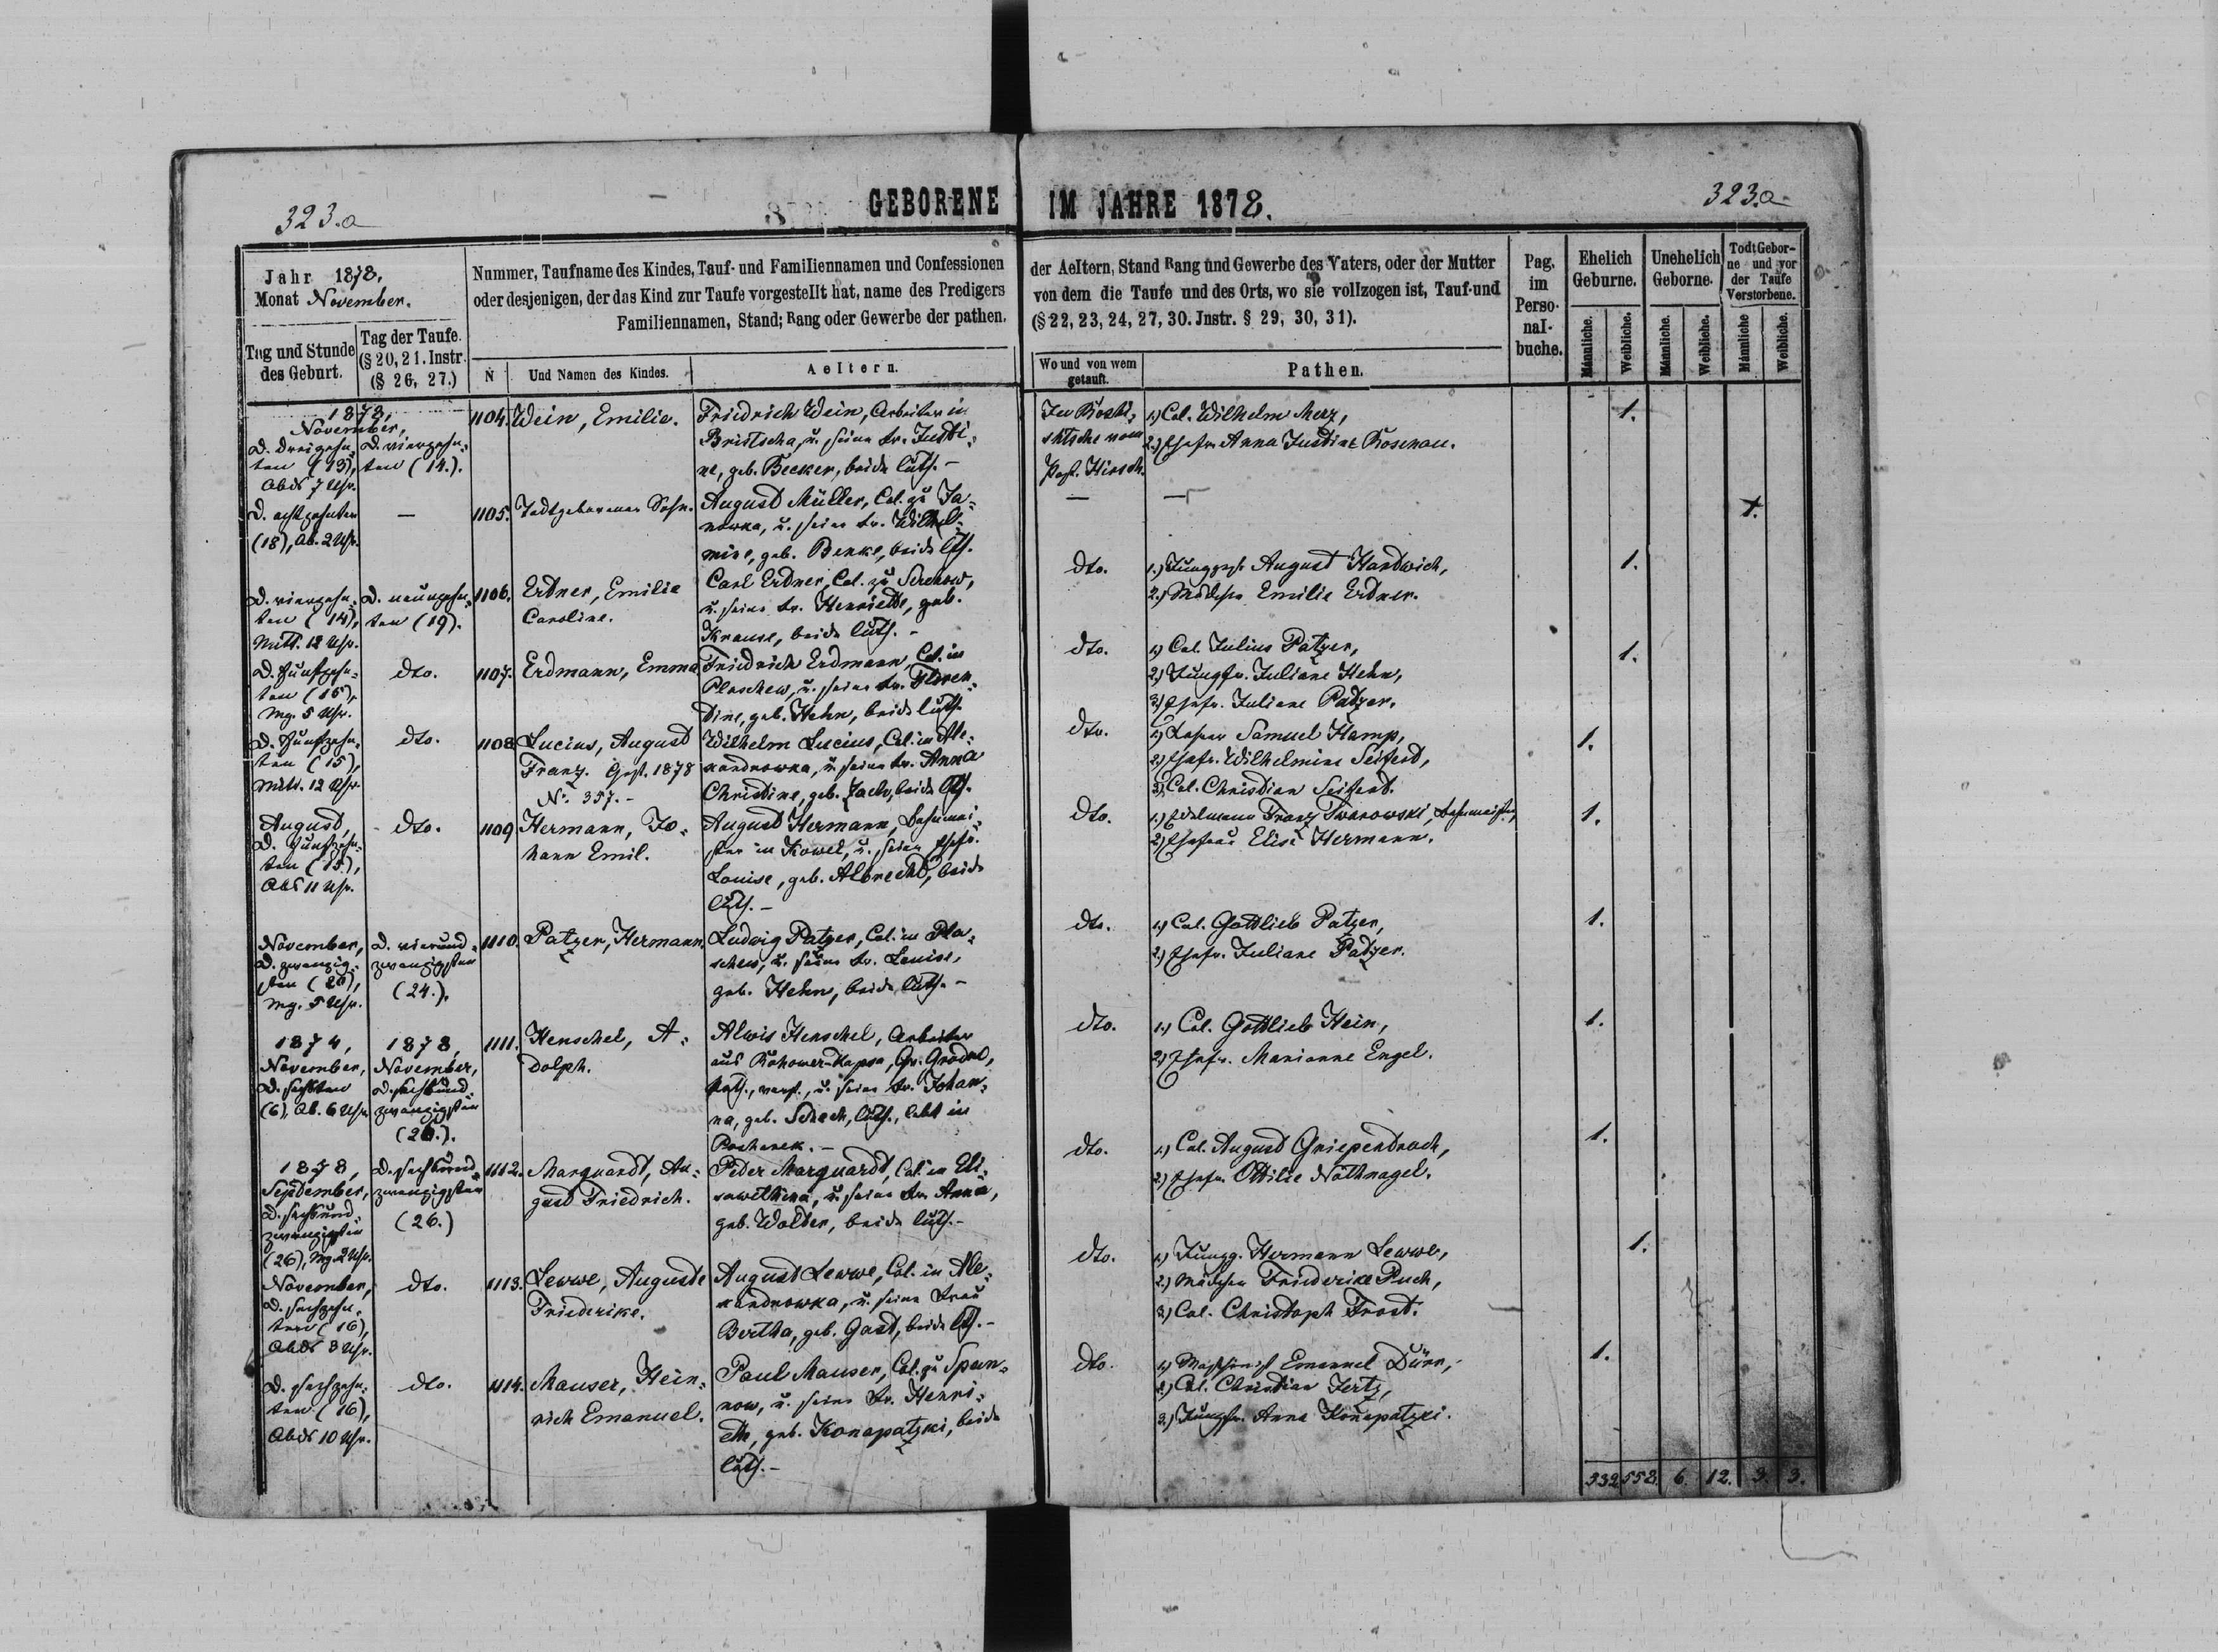 GEBORENE IM JAHRE 1878.
323.a
323.a
Jahr 1878.
Monat November.
Tag und Stunde des Geburt.
Tag der Taufe. (§ 20, 21. Instr. (§ 26, 27.)
Nummer, Taufname des Kindes, Tauf- und Familiennamen und Confessionen
oder desjenigen, der das Kind zur Taufe vorgestellt hat, name des Predigers
Familiennamen, Stand; Rang oder Gewerbe der pathen.
N
Und Namen des Kindes.
Aeltern.
der Aeltern, Stand Rang und Gewerbe des Vaters, oder der Mutter
von dem die Taufe und des Orts, wo sie vollzogen ist, Tauf-und
(§ 22, 23, 24, 27, 30. Jnstr. § 29, 30, 31).
Wo und von wem
getauft.
Pathen.
Pag.
im
Perso-
nal-
buche.
Ehelich
Geburne.
Unehelich
Geborne.
Todt Gebor-
ne und vor
der Taufe
Verstorbene.
Männliche.
Weibliche.
Männliche.
Weibliche.
Männliche
Weibliche.
1878,
November,
D. dreizehn-
ten (13),
Abds 7 Uhr.
D. vierzehn-
ten (14.).
1104. Wein, Emilie.
Friedrich Wein, Arbeiter in
Bristscha, u. seine Fr. Justi-
ne, geb. Becker, beide luth. -
In Roshi-
shtsche vom
Past. Hirsch.
1.) Col. Wilhelm Merz,
2.) Ehefr. Anna Justine Roschau.
1.
D. achtzehnten
(18), Ab. 2 Uhr.
—
1105. Todtgeborener Sohn.
August Müller, Col. zu Ja-
nowka, u. seine Fr. Wilhel-
mine, geb. Benke, beide lth.
—
—
1.
D. vierzehn-
ten (14),
Mitt. 12 Uhr.
D. neunzehn-
ten (19).
1106. Erdner, Emilie
Caroline.
Carl Erdner, Col. zu
u. seine Fr. Henriette, geb.
Krause, beide luth. -
dto.
1.) Junggs. August Hardwich,
2.) Mädchen Emilie Erdner.
1.
D. fünfzehn-
ten (15),
Mg. 5 Uhr.
dto.
1107. Erdmann, Emma
Friedrich Erdmann, Col. in
Ploschew, u. seine Fr. Floren-
tine, geb. Hehn, beide luth.
dto.
1.) Col. Julius Patzer,
2.) Jungfr. Juliane Hehn,
3.) Ehefr. Juliane Patzer.
1.
D. fünfzehn-
ten (15),
Mitt. 12 Uhr.
dto.
1108. Lucius, August
Franz. Gest. 1878
No. 357. -
Wilhelm Lucius, Col. in Ale-
xandrowka, u. seine Fr. Anna
Christine, geb. Zach, beide lth.
dto.
1.) Samuel Hamp,
2.) Ehefr. Wilhelmine Seifert,
3.) Col. Christian Seifert.
1.
August,
D. fünfzehn-
ten (15.),
Abds 11 Uhr.
dto.
1109 Hermann, Jo-
hann Emil.
August Hermann, Bahnmei-
ster in Kowel, u. seine Ehefr.
Louise, geb. Albrecht, beide
luth. -
dto.
1.) Edelmann Franz Twarowski, Bahnmeister,
2.) Ehefrau Elise Hermann.
1.
November,
D. zwanzig-
sten (20),
Mg. 5 Uhr.
D. vierund-
zwanzigsten
(24.).
1110. Patzer, Hermann
Ludwig Patzer, Col. in Plo-
schew, u. seine Fr. Louise,
geb. Hehn, beide luth. -
dto.
1.) Col. Gottlieb Patzer,
2.) Ehefr. Juliane Patzer.
1.
1874,
November,
D. sechsten
(6), Ab. 6 Uhr
1878,
November,
D. sechsund-
zwanzigsten
(26.).
1111. Henschel, A-
dolph.
Alwis Henschel, Arbeiter
aus Gr. Grodel,
kath., u. seine Fr. Johan-
na, geb. Schach, luth., lebt in
Pochanek. -
dto.
1.) Col. Gottlieb Hein,
2.) Ehefr. Marianne Engel.
1.
1878,
September,
D. sechsund-
zwanzigsten
(26), Mg. 2 Uhr.
D. sechsund-
zwanzigsten
(26.)
1112. Marquardt, Au-
gust Friedrich.
Peter Marquardt, Col. in Eli-
sawethina, u. seine Fr. Anna,
geb. Wolter, beide luth. -
dto.
1.) Col. August Griependroch,
2.) Ehefr. Ottilie Nothnagel.
1.
November,
D. sechzehn-
ten (16),
Abds 8 Uhr.
dto.
1113. Lewwe, Auguste
Friederike.
August Lewwe, Col. in Ale-
xandrowka, u. seine Frau
Bertha, geb. Gast, beide lth. -
dto.
1.) Jungg. Hermann Lewwe,
2.) Mädchen Friederike Puch,
3.) Col. Christoph Frost.
1.
D. sechzehn-
ten (16),
Abds 10 Uhr.
dto.
1114. Mauser, Hein-
rich Emanuel.
Paul Mauser, Col. zu Span-
now, u. seine Fr. Henri-
ette, geb. Konapatzki, beide
luth. -
dto.
1.) Maschinist Emanuel Dürr,
2.) Col. Christian Jertz,
3.) Jungfr. Anna Konapatzki.
1.
532 552. 6. 12. 3. 3.